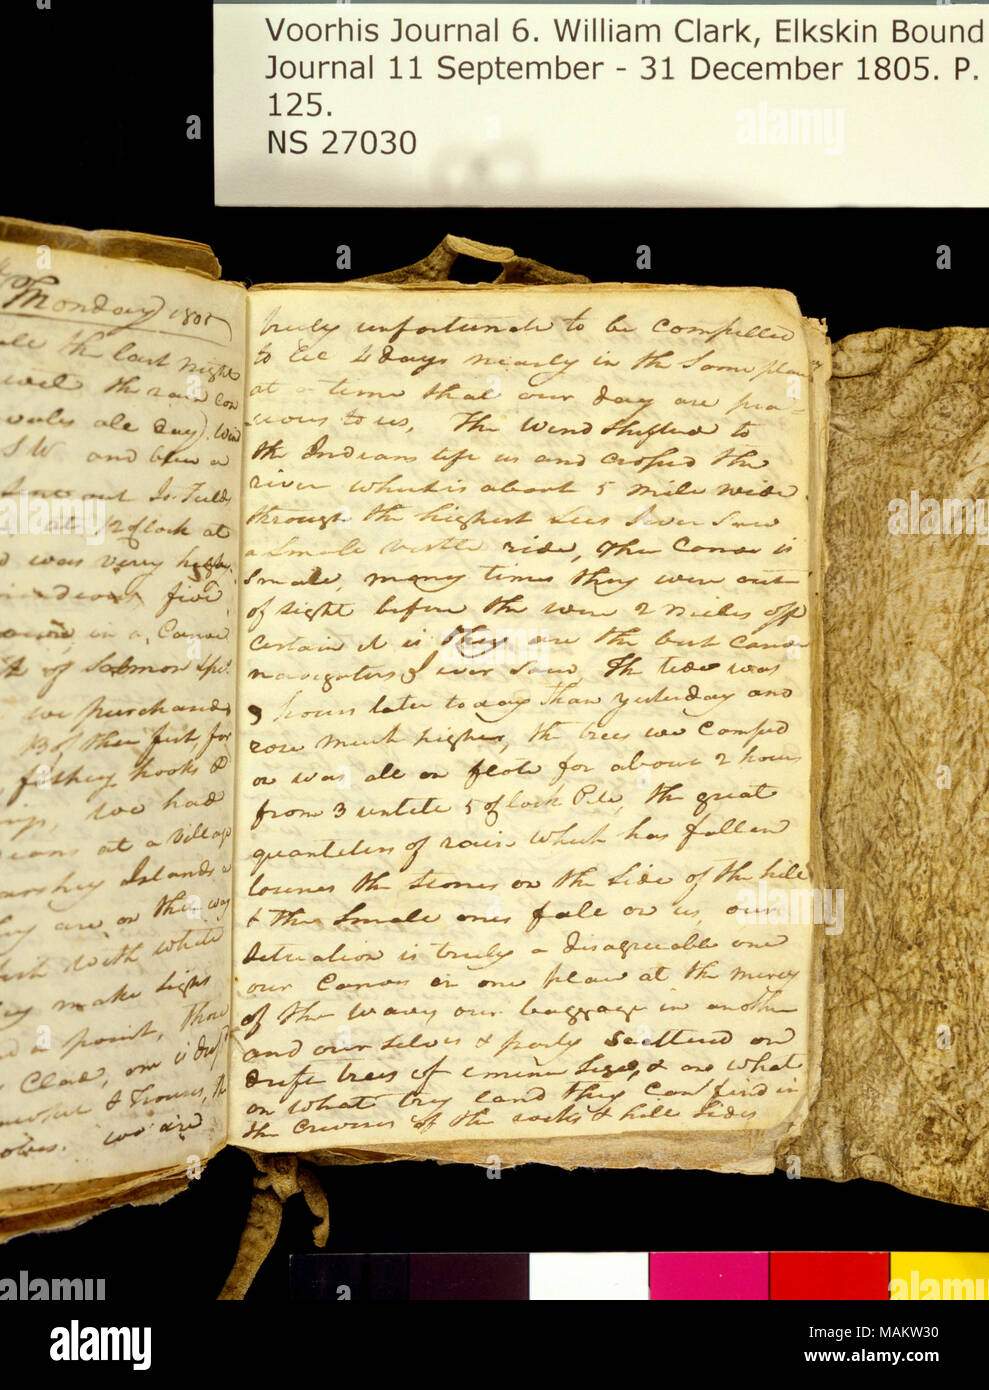 Voorhis Journal 6. William Clark, Elkskin Bound
Journal 11 September - 31 December 1805. P.
125.
NS 27030
Monday 1805
the last night
the rain con
all day). Wind
S W and blew a
out Jo. Fields
at 12 oClock at
was very high
five
in a Canoe
of Salmon
we purchased
13 of their fish, for
fishing hooks &
we had
at a village
marshey Islands
they are on their way
with white
make signs
a point, those
Clad, one is
& Trouses,
we are
truly unfortunate to be compelled
to lie 4 days nearly in the Same place
at a time that our day are pre
cious to us, The wind Shifted to
the Indians left us and crossed the
river which is about 5 mile wide
through the highest Sees I ever Saw
a Small vestle ride, their Canoe is
Small, many times they were out
of sight before the were 2 miles off
Certain it is they are the best Canoe
navigators I ever Saw The tide was
3 hours later to day than yesterday and
rose much higher, the trees we camped
on was all on flote for about 2 hours
from 3 untill 5 oClock P M, the great
quantities of rain which has fallen
losenes the Stones on the Side of the hill
& the Small ones fall on us, our
Situation is truly a disagreeable one
our Canoes in one place at the mercy
of the waves our baggage in another
and our selves & party Scattered on
drift trees of emence Sizes, & are on what
on what dry land they can find in
the Crevices of the rocks & hill Sides
alamy
a
Image ID: MAKW30
www.alamy.com